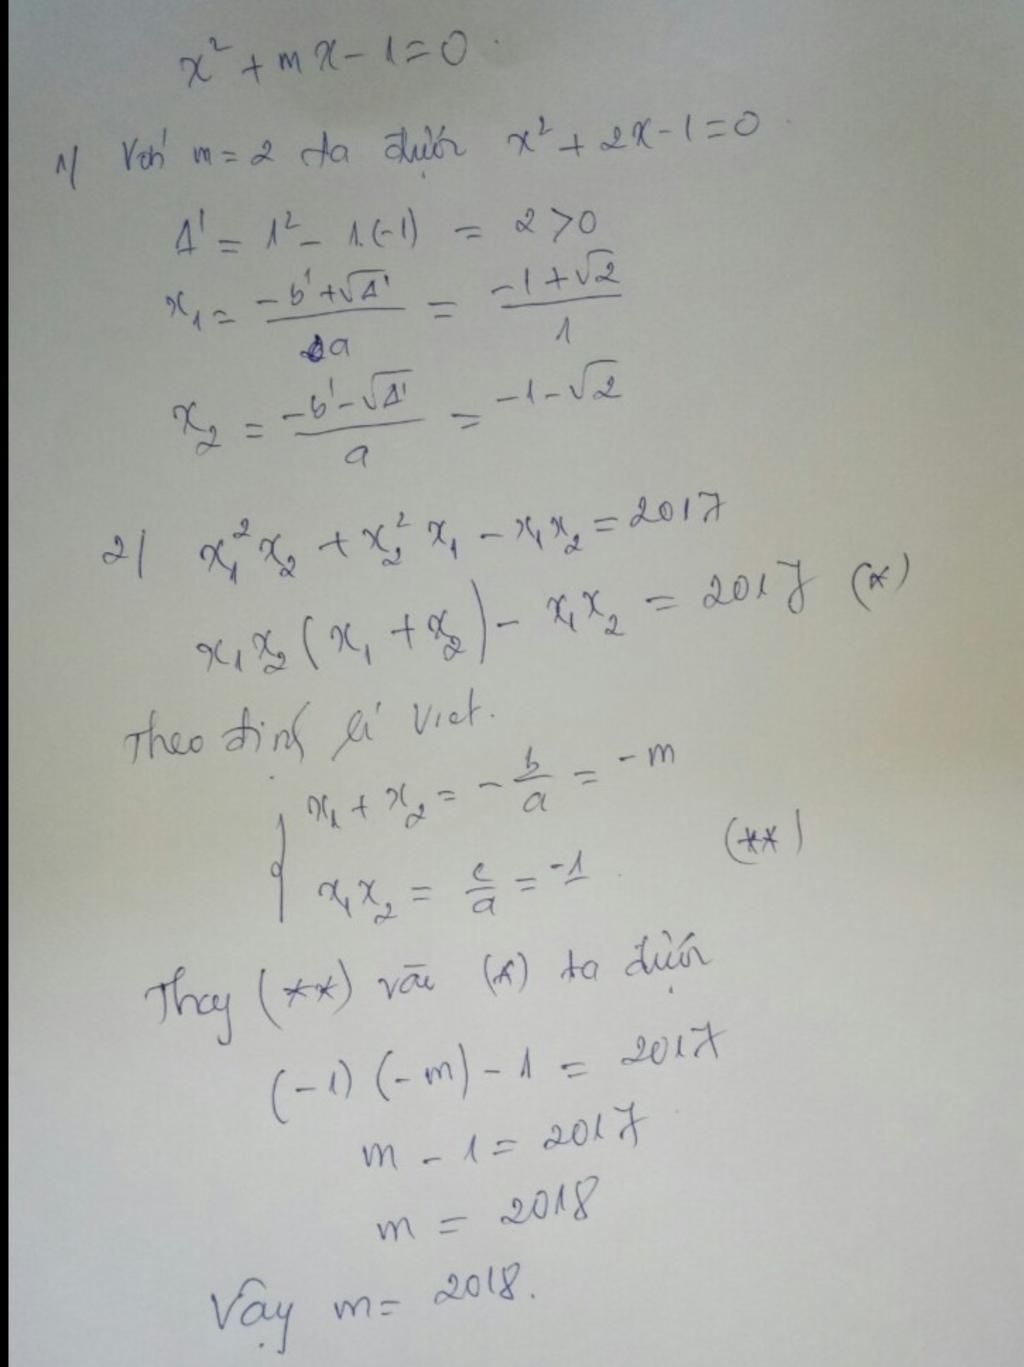 x² + mx - 1 = 0.
1/ Với m = 2 ta được x² + 2x - 1 = 0.
Δ' = 1² - 1.(-1) = 2 > 0
x₁ = (-b' + √Δ')/a = (-1 + √2)/1
x₂ = (-b' - √Δ')/a = -1 - √2
2/ x₁²x₂ + x₂²x₁ - x₁x₂ = 2017
x₁x₂(x₁ + x₂) - x₁x₂ = 2017 (*)
Theo định lí Viet.
{ x₁ + x₂ = -b/a = -m
x₁x₂ = c/a = -1. (**)
Thay (**) vào (*) ta được
(-1)(-m) - 1 = 2017
m - 1 = 2017
m = 2018
Vậy m = 2018.